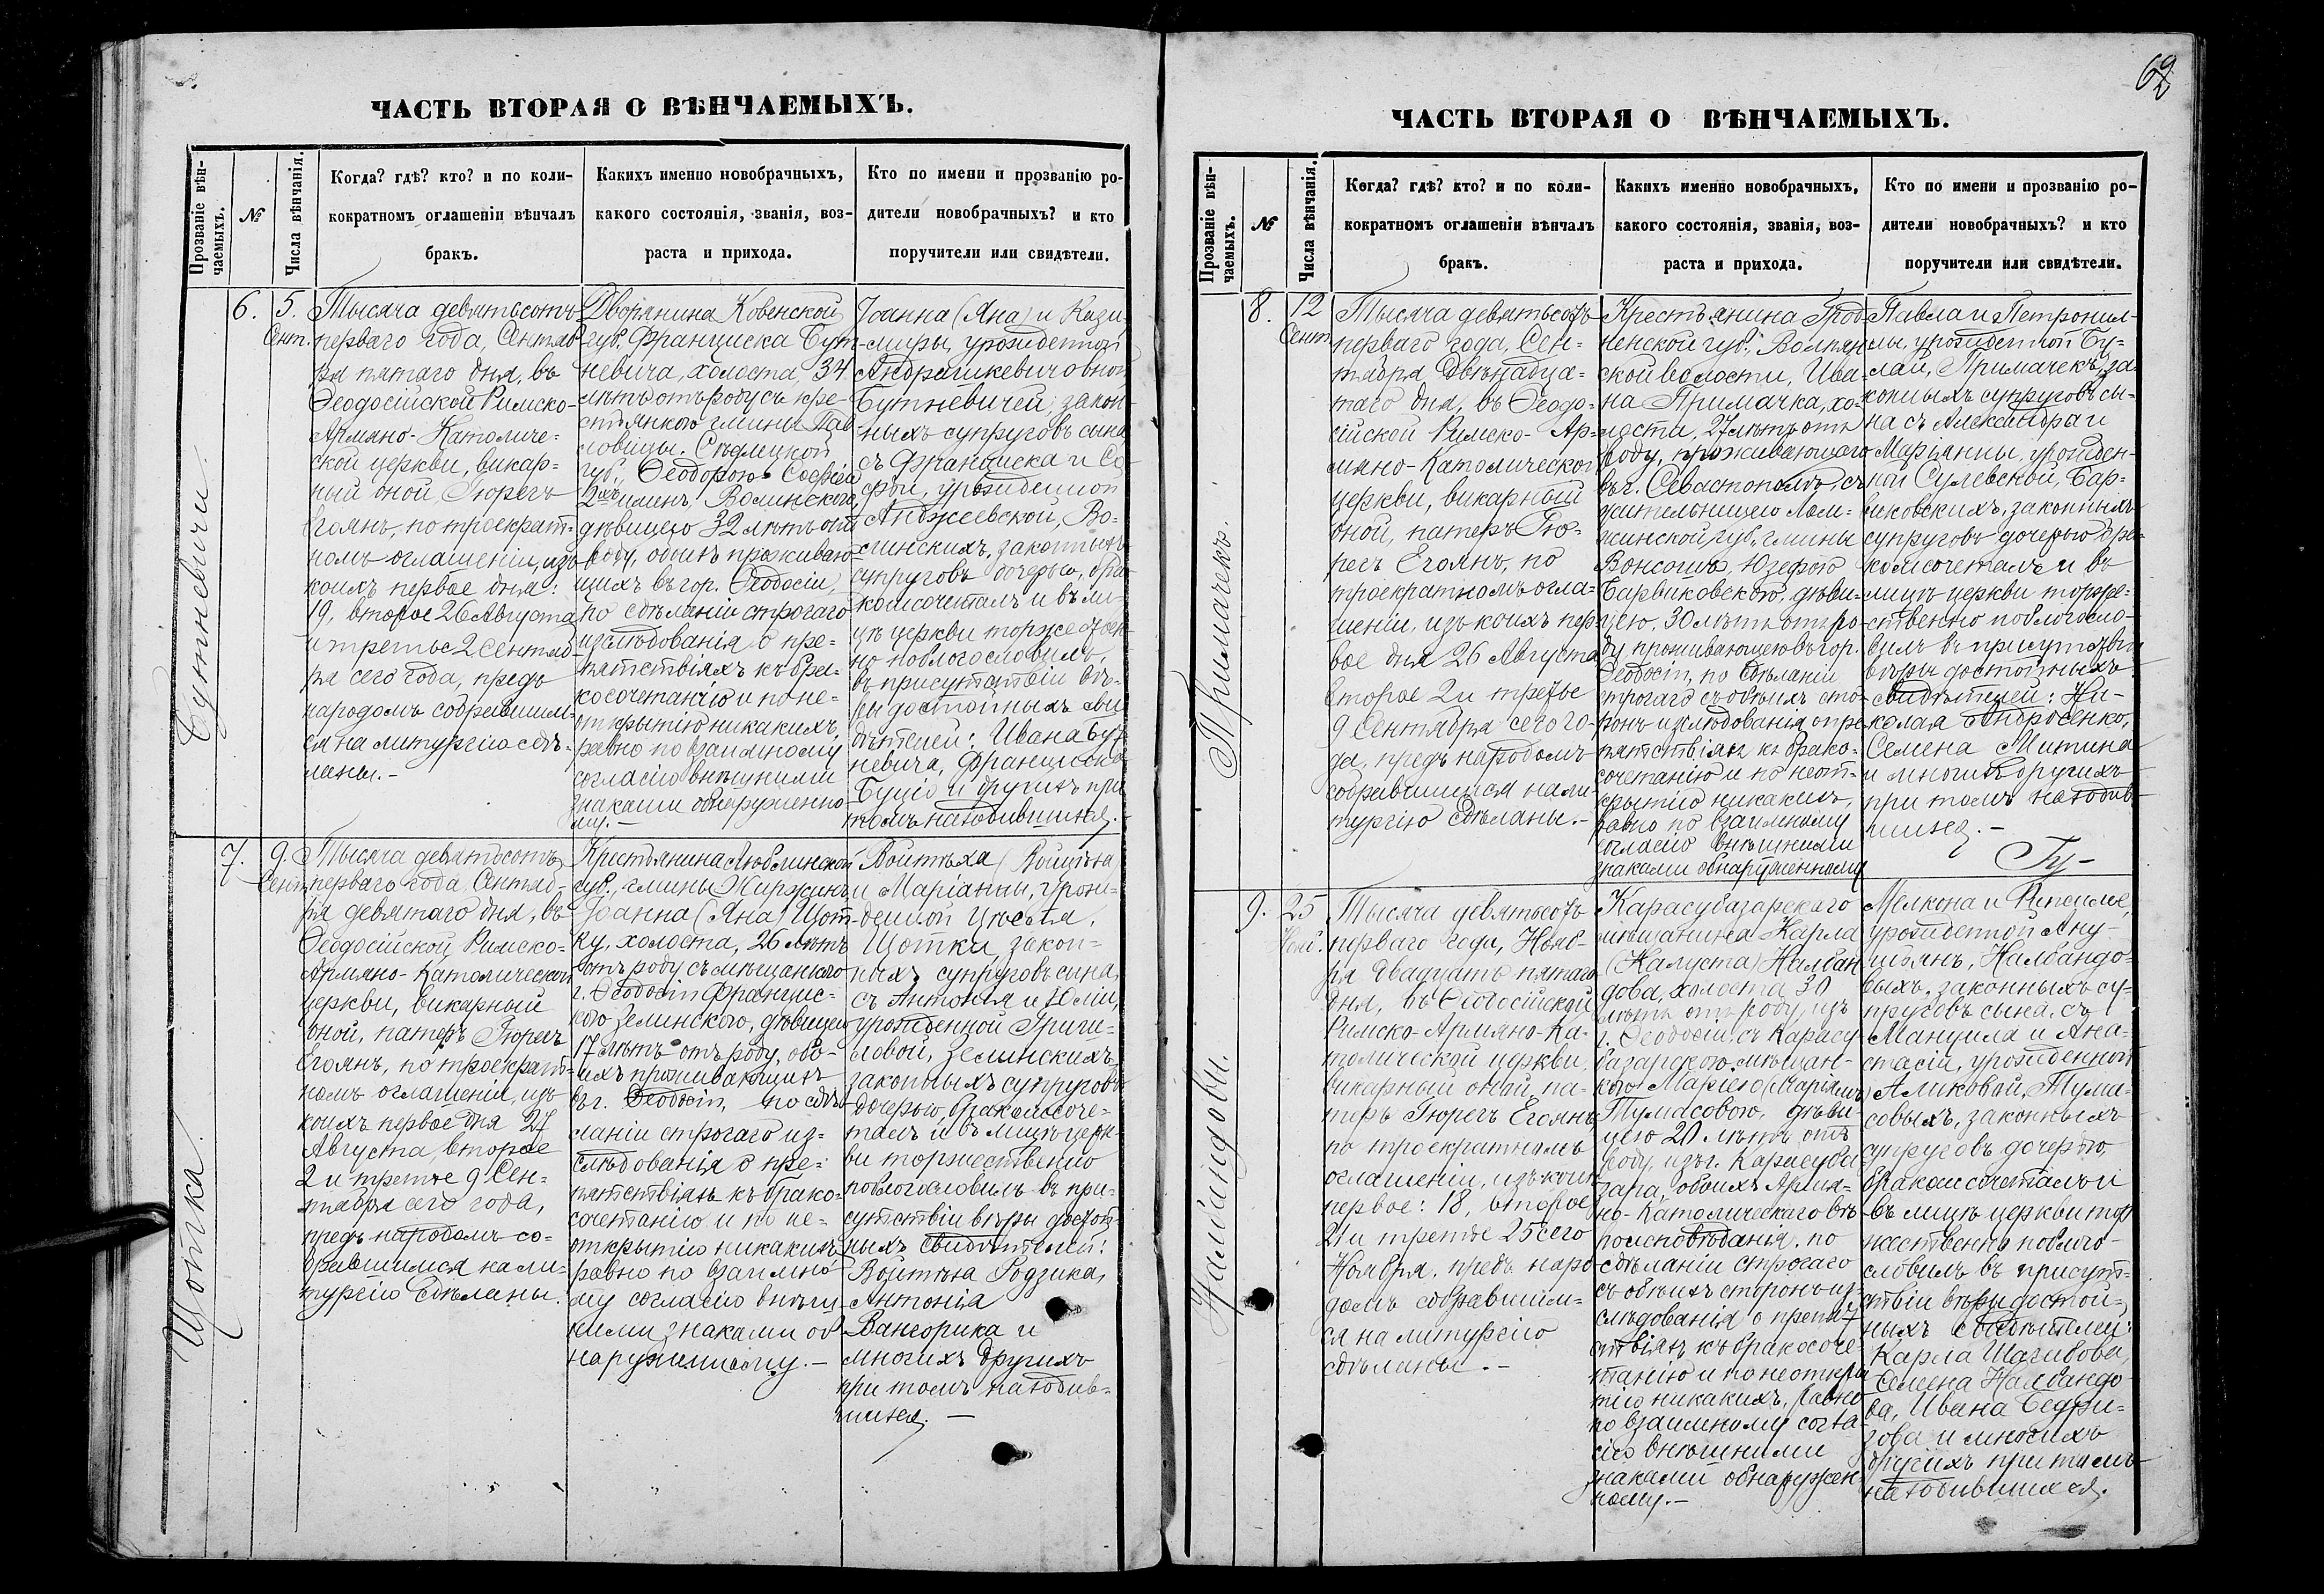 ЧАСТЬ ВТОРАЯ О ВѢНЧАЕМЫХЪ.
Прозваніе вѣн-
чаемыхъ.
№
Числа вѣнчанія.
Когда? гдѣ? кто? и по коли-
кократномъ оглашеніи вѣнчалъ
бракъ.
Какихъ именно новобрачныхъ,
какого состоянія, званія, воз-
раста и прихода.
Кто по имени и прозванію ро-
дители новобрачныхъ? и кто
поручители или свидѣтели.
Бутневичи.
6.
5.
Сент.
Тысяча девятьсотъ
перваго года, Сентяб-
ря пятаго дня, въ
Ѳеодосійской Римско-
Армяно-Католиче-
ской церкви, викар-
ный оной, Гюрегъ
Егоянъ, по троекрат-
номъ оглашеніи, изъ
коихъ первое дня:
19, второе 26 Августа
и третье 2 Сентяб-
ря сего года, предъ
народомъ собравшим-
ся на литургію сдѣ-
ланы.-
Дворянина Ковенской
губ. Франциска Бут-
невича, холоста, 34
лѣтъ отъ роду съ кре-
стьянкою гмины Пав-
ловицы, Сѣдлецкой
губ., Ѳеодорою Софіей
2хъ именъ, Волинскою,
дѣвицею 32 лѣтъ отъ
роду, обоихъ проживаю-
щихъ въ гор. Ѳеодосіи,
по сдѣланіи строгаго
изслѣдованія о пре-
пятствіяхъ къ бра-
косочетанію и по не-
открытію никакихъ,
равно по взаимному
согласію внѣшними
знаками обнаруженно
му.-
Іоанна (Яна) и Кази-
миры, урожденной
Андрашкевичовной
Бутневичей, закон-
ныхъ супруговъ сына
съ Франциска и Со-
фіи, урожденной
Анджеевской, Во-
линскихъ, законныхъ
супруговъ дочерью, бра-
комъ сочеталъ и въ ли-
цѣ церкви торжествен-
но поблогословилъ,
въ присутствіи вѣ-
ры достойныхъ сви
дѣтелей: Ивана Бут
невича, Франциска
Буцю и другихъ при
томъ находившихся.-
Щотка.
7.
9.
Сент.
Тысяча девятьсотъ
перваго года, Сентяб-
ря девятаго дня, въ
Ѳеодосійской Римско-
Армяно-Католической
церкви, викарный
оной, патеръ Гюрегъ
Егоянъ, по троекрат-
номъ оглашеніи, изъ
коихъ первое дня 27
Августа, второе
2 и третье 9 Сен-
тября сего года,
предъ народомъ со-
бравшимся на ли-
тургію сдѣланы.
Крестьянина Люблинской
губ., гмины Жиржинъ
Іоанна (Яна) Щот-
ку, холоста, 26 лѣтъ
отъ роду съ мѣщанкою
г. Ѳеодосіи Францис-
кою Зелинскою, дѣвицею
17 лѣтъ отъ роду, обо-
ихъ проживающихъ
въ г. Ѳеодосіи, по сдѣ-
ланіи строгаго из-
слѣдованія о пре-
пятствіяхъ къ брако-
сочетанію и по не-
открытію никакихъ
равно по взаимно-
му согласію внѣш-
ними знаками об
наруженному.-
Войтѣха (Войцѣха)
и Маріанны, урож-
денной Цѣсьля,
Щотки, закон-
ныхъ супруговъ сына,
съ Антонія и Юліи,
урожденной Григи-
ловой, Зелинскихъ,
законныхъ супруговъ
дочерью, бракомъ соче-
талъ и въ лицѣ церк-
ви торжественно
поблогословилъ въ при-
сутствіи вѣры достой-
ныхъ свидѣтелей:
Войтѣха Родзика,
Антонія
Вангорика и
многихъ другихъ
при томъ находив-
шихся.-
62
ЧАСТЬ ВТОРАЯ О ВѢНЧАЕМЫХЪ.
Прозваніе вѣн-
чаемыхъ.
№
Числа вѣнчанія.
Когда? гдѣ? кто? и по коли-
кократномъ оглашеніи вѣнчалъ
бракъ.
Какихъ именно новобрачныхъ,
какого состоянія, званія, воз-
раста и прихода.
Кто по имени и прозванію ро-
дители новобрачныхъ? и кто
поручители или свидѣтели.
Примачекъ.
8.
12
Сент
Тысяча девятьсотъ
перваго года, Сен-
тября двѣнадца-
таго дня, въ Ѳеодо-
сійской Римско-Ар-
мяно-Католической
церкви, викарный
оной, патеръ Гю-
регъ Егоянъ, по
троекратномъ огла-
шеніи, изъ коихъ пер-
вое дня 26 Августа
второе 2 и третье
9 Сентября сего го-
да, предъ народомъ
собравшимся на ли-
тургію сдѣланы.-
Крестьянина Грод-
ненской губ., Волпян-
ской волости, Ива-
на Примачка, хо-
лоста, 27 лѣтъ отъ
роду, проживающаго
въ г. Севастополѣ, съ
жительницею Лом-
жинской губ., гмины
Вонсошъ, Юзефою
Барвиковскою, дѣви-
цею, 30 лѣтъ отъ ро-
ду, проживающею въ гор.
Ѳеодосіи, по сдѣланіи
строгаго съ обѣихъ сто-
ронъ изслѣдованія о пре
пятствіяхъ къ брако-
сочетанію и по неот-
крытію никакихъ,
равно по взаимному
согласію внѣшними
знаками обнаруженному
Павла и Петронил-
лы, урожденной Бу-
лай, Примачекъ, за-
конныхъ супруговъ сы-
на съ Александра и
Маріанны, урожден-
ной Сулевской, Бар-
виковскихъ, законныхъ
супруговъ дочерью бра-
комъ сочеталъ и въ
лицѣ церкви торже-
ственно поблогосло-
вилъ въ присутствіи
вѣры достойныхъ
свидѣтелей: Ни-
колая Андросенко,
Семена Митина
и многихъ другихъ
при томъ находив-
шихся.-
Гу-
Налбандовы.
9.
25
Нояб.
Тысяча девятьсотъ
перваго года, Нояб-
ря двадцать пятаго
дня, въ Ѳеодосійской
Римско-Армяно-Ка-
толической церкви,
викарный оной, па-
теръ Гюрегъ Егоянъ,
по троекратномъ
оглашеніи, изъ коихъ
первое: 18, второе
21 и третье 25 сего
Ноября, предъ наро
домъ собравшим-
ся на литургію
сдѣланы.-
Карасубазарскаго
мѣщанина Карпа
(Калуста) Налбан
дова, холоста, 30
лѣтъ отъ роду, изъ
г. Ѳеодосіи, съ Карасу
базарскою мѣщан-
кою Маріею (Маріамъ)
Тумасовою, дѣви-
цею 20 лѣтъ отъ
роду, изъ г. Карасуба
зара, обоихъ Армя-
но-Католическаго вѣ-
роисповѣданія, по
сдѣланіи строгаго
съ обѣихъ сторонъ из-
слѣдованія о препят
ствіяхъ къ бракосоче-
танію и по неоткры
тію никакихъ, равно
по взаимному согла
сію внѣшними
знаками обнаружен-
ному.-
Мелкона и Рипсиме,
урожденной Ану-
шьянъ, Налбандо-
выхъ, законныхъ су-
пруговъ сына, съ
Мануила и Ана-
стасіи, урожденной
Аликовой, Тума-
совыхъ, законныхъ
супруговъ дочерью,
бракомъ сочеталъ и
въ лицѣ церкви тор
жественно поблого-
словилъ въ присут-
ствіи вѣры достой-
ныхъ свидѣтелей:
Карпа Шагивова,
Семена Налбандо-
ва, Ивана Бедри-
зова и многихъ
другихъ при томъ
находившихся.